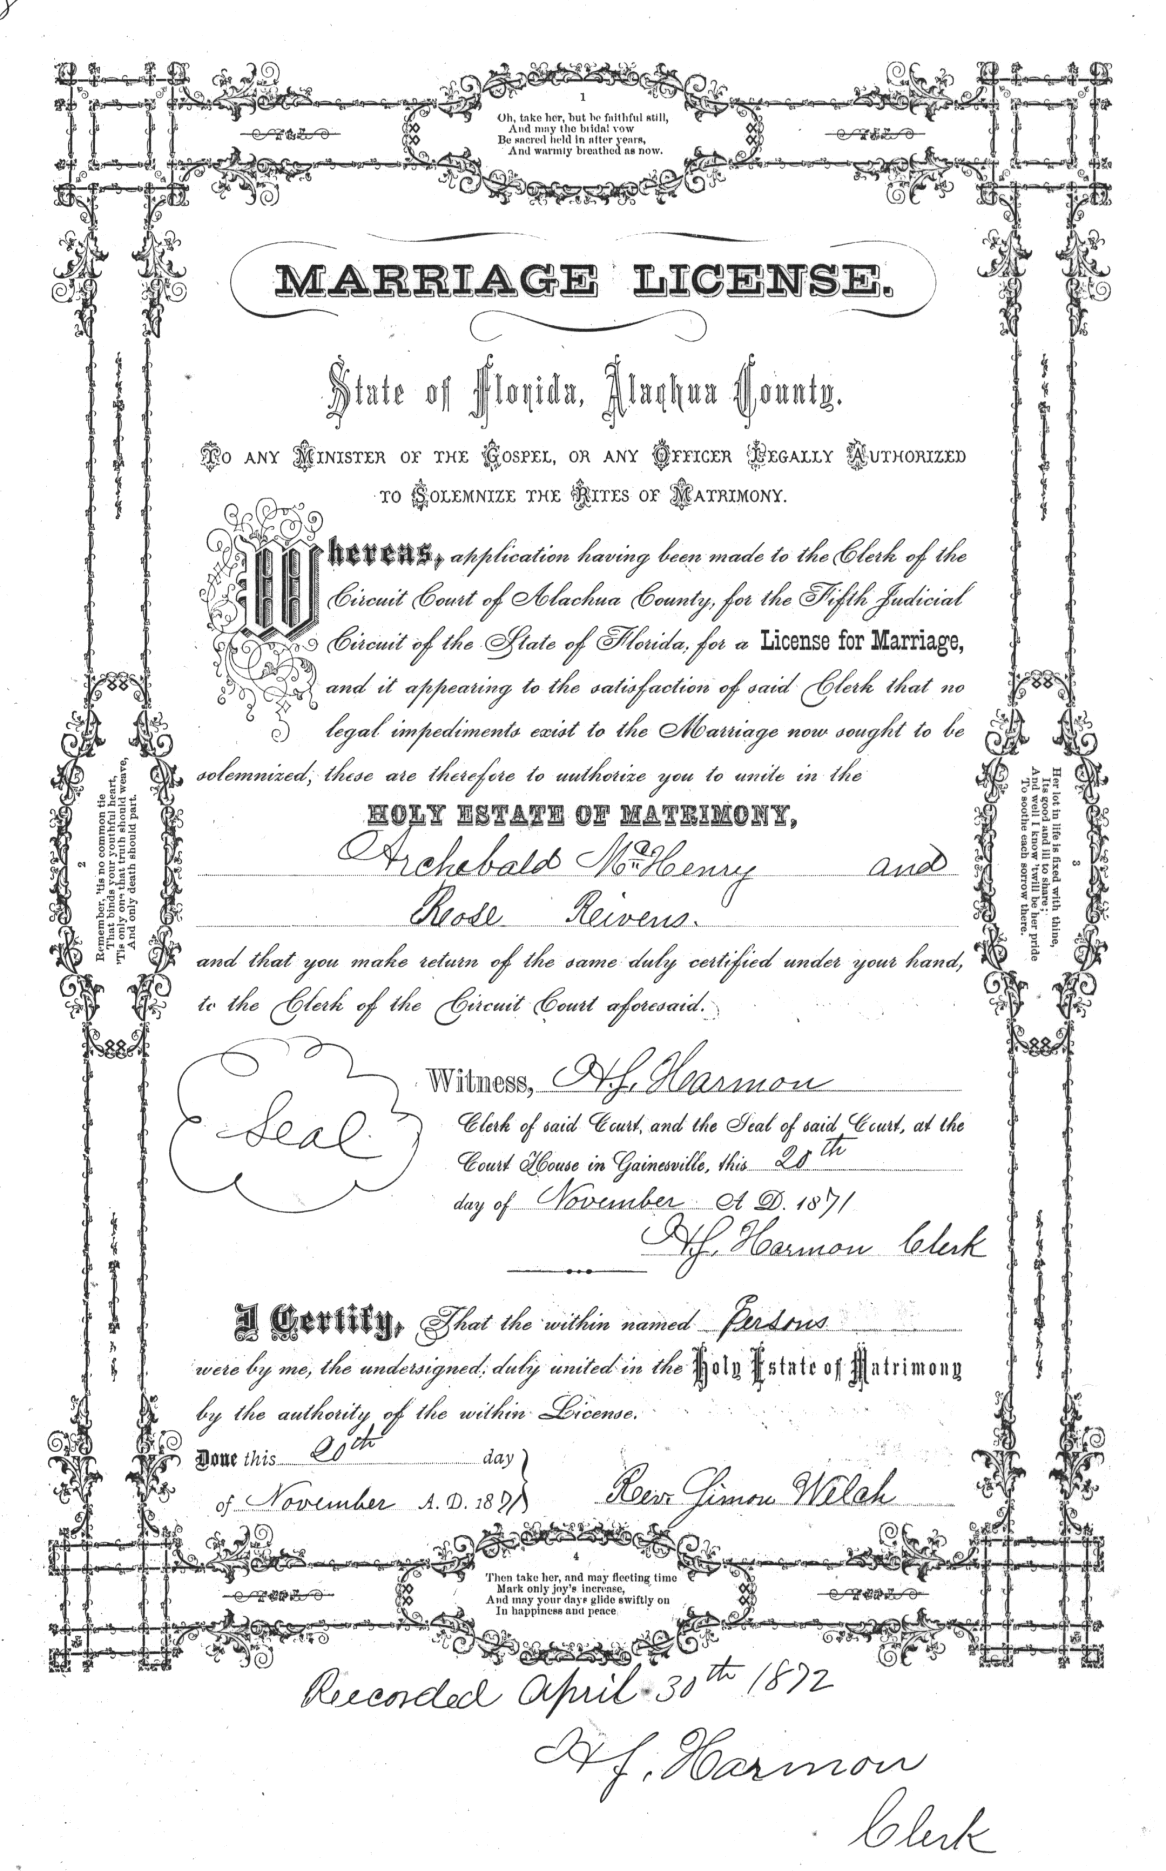 1
Oh, take her, but be faithful still,
And may the bridal vow
Be sacred held in after years,
And warmly breathed as now.
MARRIAGE LICENSE.
State of Florida, Alachua County.
TO ANY MINISTER OF THE GOSPEL, OR ANY OFFICER LEGALLY AUTHORIZED
TO SOLEMNIZE THE RITES OF MATRIMONY.
Whereas, application having been made to the Clerk of the
Circuit Court of Alachua County, for the Fifth Judicial
Circuit of the State of Florida, for a License for Marriage,
and it appearing to the satisfaction of said Clerk that no
legal impediments exist to the Marriage now sought to be
solemnized; these are therefore to authorize you to unite in the
HOLY ESTATE OF MATRIMONY,
Archebald McHenry and
Rose Reivens.
and that you make return of the same duly certified under your hand,
to the Clerk of the Circuit Court aforesaid.
Seal.
Witness, H.J. Harmon
Clerk of said Court, and the Seal of said Court, at the
Court House in Gainesville, this 20th
day of November A D. 1871
H.J. Harmon Clerk
I Certify, That the within named Persons
were by me, the undersigned, duly united in the Holy Estate of Matrimony
by the authority of the within License.
Done this 20th day
of November A. D. 1871
Rev. Simon Welch
2
Remember, 'tis no common tie
That binds your youthful heart,
'Tis only one that truth should weave,
And only death should part.
3
Her lot in life is fixed with thine,
Its good and ill to share;
And well I know 'twill be her pride
To soothe each sorrow there.
4
Then take her, and may fleeting time
Mark only joy's increase,
And may your days glide swiftly on
In happiness and peace
Recorded April 30th 1872
H.J. Harmon
Clerk